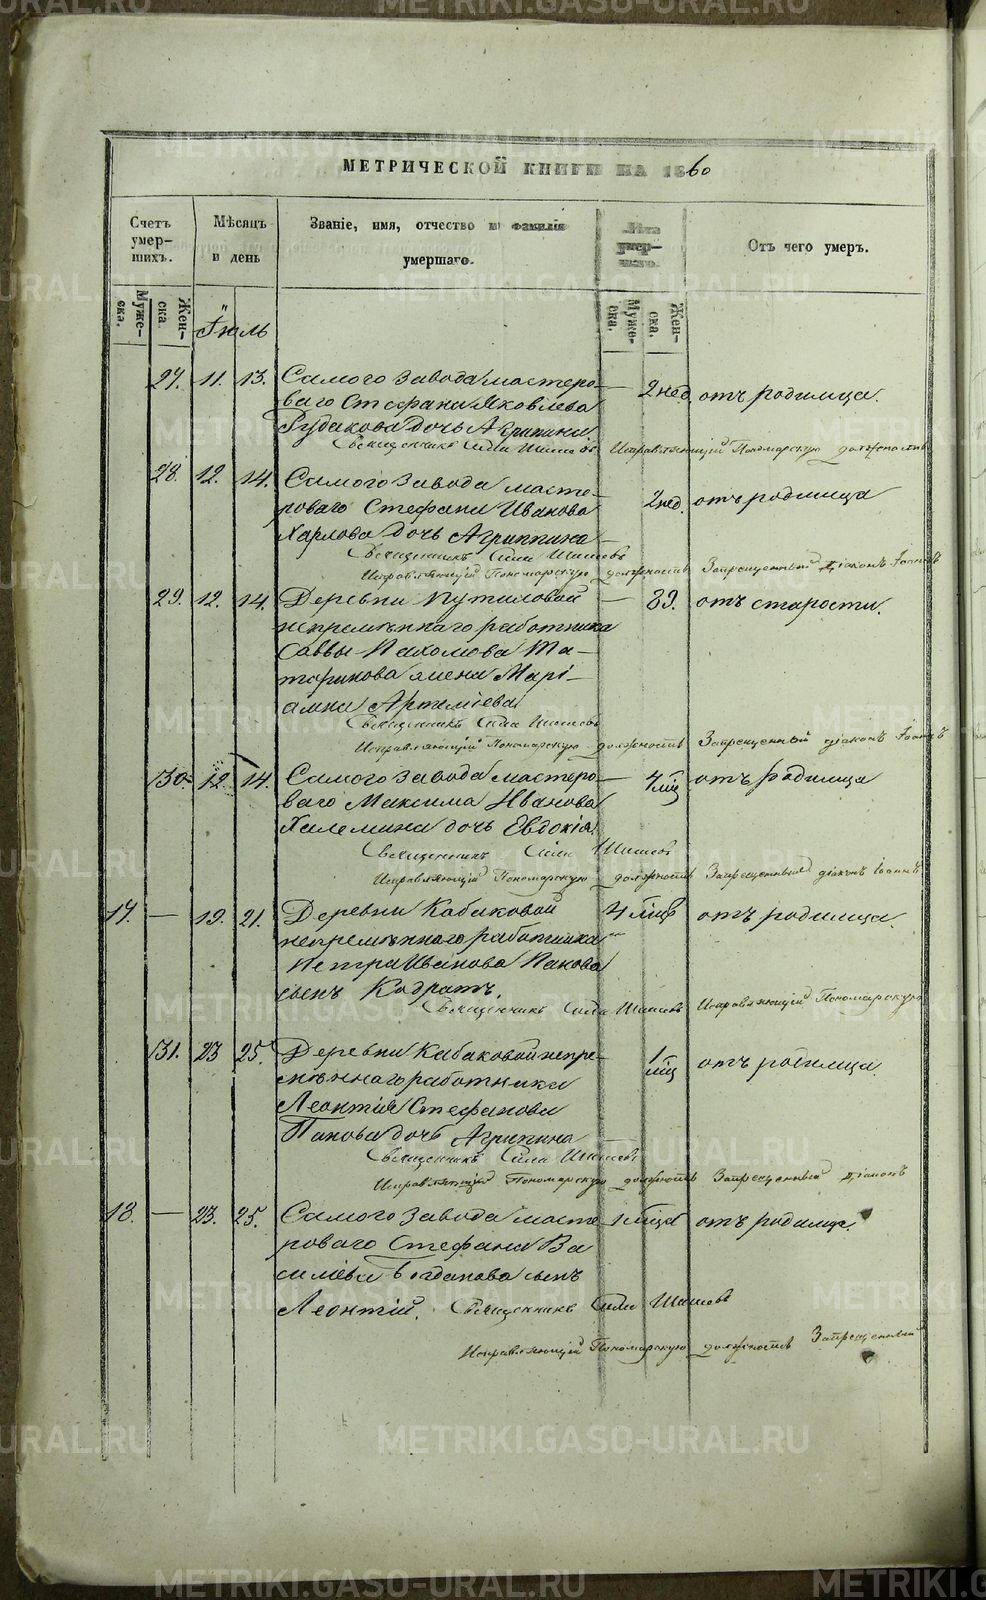 МЕТРИЧЕСКОЙ КНИГИ НА 1860
Счетъ умер-шихъ.
Мѣсяцъ и день
Званіе, имя, отчество и фамилія умершаго.
Лѣта умер-шаго.
Отъ чего умеръ.
Муже-ска.
Жен-ска.
Муже-ска.
Жен-ска.
Іюль
27. 11. 13. Самого завода мастеро- — 2 нед. отъ родимца.
ваго Стефана Яковлева
Рудакова дочь Агрипина
Священникъ Сила Шишовъ Исправляющій Пономарскую должность
28. 12. 14. Самого завода масте- 2 нед. отъ родимца
роваго Стефана Иванова
Харлова дочь Агриппина
Священникъ Сила Шишовъ
Исправляющій Пономарскую должность Запрещенный діаконъ Іоаннъ
29. 12. 14. Деревни Путиловой — 89. отъ старости.
непремѣннаго работника
Саввы Пахомова
жена Марі-
амна Артеміева
Священникъ Сила Шишовъ
Исправляющій Пономарскую должность Запрещенный діаконъ Іоаннъ
30. 12. 14. Самого завода мастеро- — 4 мц отъ родимца
ваго Максима Иванова
Халемина дочь Евдокія.
Священникъ Сила Шишовъ
Исправляющій Пономарскую должность Запрещенный діаконъ Іоаннъ
17. — 19. 21. Деревни Кабаковой 4 мцъ отъ родимца.
непремѣннаго работника
Петра Иванова Панова
сынъ Кодратъ.
Священникъ Сила Шишовъ Исправляющій Пономарскую
31. 23 25. Деревни Кабаковой непре- 1 мц отъ родимца.
мѣннаго работника
Леонтія Стефанова
Панова дочь Агрипина
Священникъ Сила Шишовъ
Исправляющій Пономарскую должность Запрещенный діаконъ
18. — 23. 25. Самого завода масте- 1 мца отъ родимца.
роваго Стефана Ва
силіева Богданова сынъ
Леонтій. Священникъ Сила Шишовъ
Исправляющій Пономарскую должность Запрещенный
METRIKI.GASO-URAL.RU